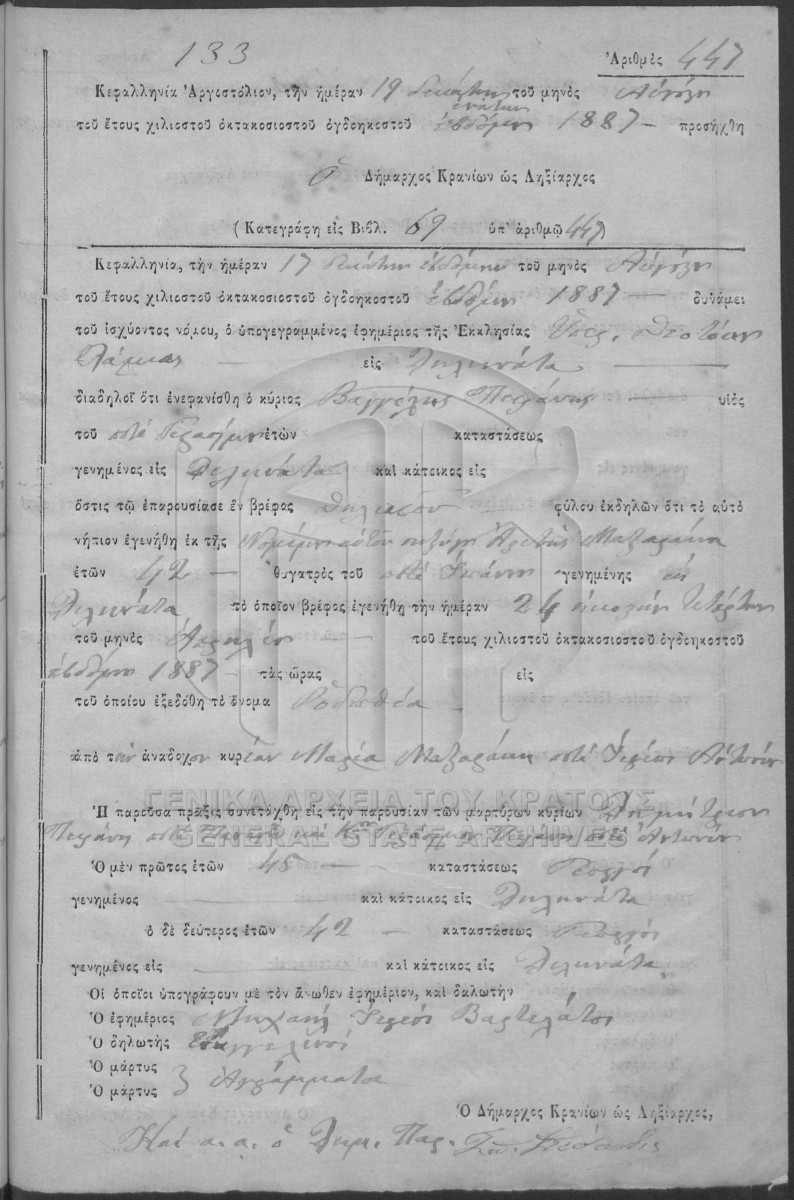 133
Ἀριθμὸς 447
Κεφαλληνία Ἀργοστόλιον, τὴν ἡμέραν 19 δεκάτην ἐνάτην τοῦ μηνὸς
τοῦ ἔτους χιλιοστοῦ ὀκτακοσιοστοῦ ὀγδοηκοστοῦ ἑβδόμου 1887 — προσήχθη
Ὁ Δήμαρχος Κρανίων ὡς Ληξίαρχος
(Κατεγράφη εἰς Βιβλ. 69 ὑπ' ἀριθμῷ 447)
Κεφαλληνία, τὴν ἡμέραν 17 δεκάτην ἑβδόμην τοῦ μηνὸς
τοῦ ἔτους χιλιοστοῦ ὀκτακοσιοστοῦ ὀγδοηκοστοῦ ἑβδόμου 1887 — δυνάμει
τοῦ ἰσχύοντος νόμου, ὁ ὑπογεγραμμένος ἐφημέριος τῆς Ἐκκλησίας Ὑπερ. Θεοτόκου
Λάμιας — εἰς Διλινάτα —
διαδηλοῖ ὅτι ἐνεφανίσθη ὁ κύριος Βαγγέλης — υἱὸς
τοῦ ποτὲ Γερασίμου ἐτῶν καταστάσεως
γενημένος εἰς Διλινάτα καὶ κάτοικος εἰς
ὅστις τῷ ἐπαρουσίασε ἓν βρέφος θηλυκοῦ φύλου ἐκδηλῶν ὅτι τὸ αὐτὸ
νήπιον ἐγενήθη ἐκ τῆς Νομίμου αὐτοῦ συζύγου Ἀρετῆς Μαζαράκη
ἐτῶν 42 — θυγατρὸς τοῦ ποτὲ γενημένης εἰς
Διλινάτα τὸ ὁποῖον βρέφος ἐγενήθη τὴν ἡμέραν 24 εἰκοστὴν τετάρτην
τοῦ μηνὸς Ἀπριλίου — τοῦ ἔτους χιλιοστοῦ ὀκτακοσιοστοῦ ὀγδοηκοστοῦ
ἑβδόμου 1887 — τὰς ὥρας εἰς
τοῦ ὁποίου ἐξεδόθη τὸ ὄνομα Ῥοδοθέα —
ἀπὸ τὴν ἀνάδοχον κυρίαν Μαρία Μαζαράκη ποτὲ
ΓΕΝΙΚΑ ΑΡΧΕΙΑ ΤΟΥ ΚΡΑΤΟΥΣ
Ἡ παροῦσα πρᾶξις συνετάχθη εἰς τὴν παρουσίαν τῶν μαρτύρων κυρίων Δημήτριον
ποτὲ καὶ Γεράσιμον ποτὲ
GENERAL STATE ARCHIVES
Ὁ μὲν πρῶτος ἐτῶν 45 — καταστάσεως Γεωργοί
γενημένος — καὶ κάτοικος εἰς Διλινάτα
ὁ δὲ δεύτερος ἐτῶν 42 — καταστάσεως Γεωργοί
γενημένος εἰς — καὶ κάτοικος εἰς Διλινάτα
Οἱ ὁποῖοι ὑπογράφουν μὲ τὸν ἄνωθεν ἐφημέριον, καὶ δαλωτὴν
Ὁ ἐφημέριος Μιχαὴλ Ἱερεὺς
Ὁ δηλωτὴς
Ὁ μάρτυς
Ὁ μάρτυς } Ἀγράμματοι
Ὁ Δήμαρχος Κρανίων ὡς Ληξίαρχος,
Καὶ α. α. ὁ Δημ. Παρ.